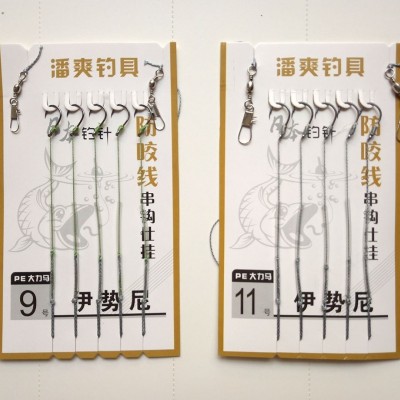 潘爽钓具
钓针
防咬线
串钩仕挂
PE大力马
9号
伊势尼
潘爽钓具
日本钓针
防咬线
串钩仕挂
PE大力马
11号
伊势尼